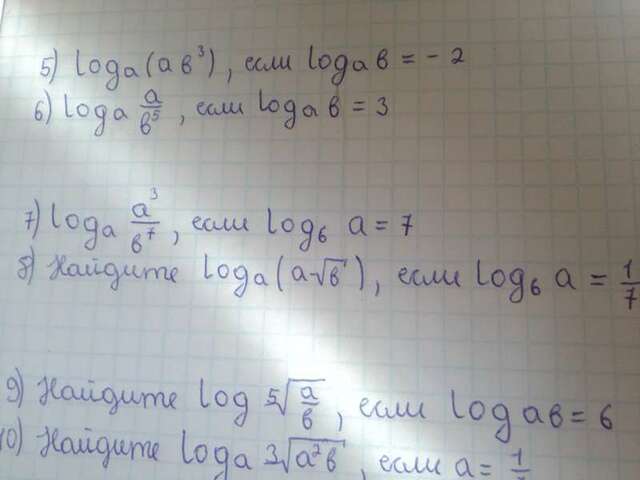 5) log_a (ab³), если log_a b = -2
6) log_a a/b⁵, если log_a b = 3
7) log_a a³/b⁷, если log_b a = 7
8) Найдите log_a (a√b), если log_b a = 1/7
9) Найдите log ⁵√(a/b), если log_a b = 6
10) Найдите log_a ³√(a²b), если a = 1/